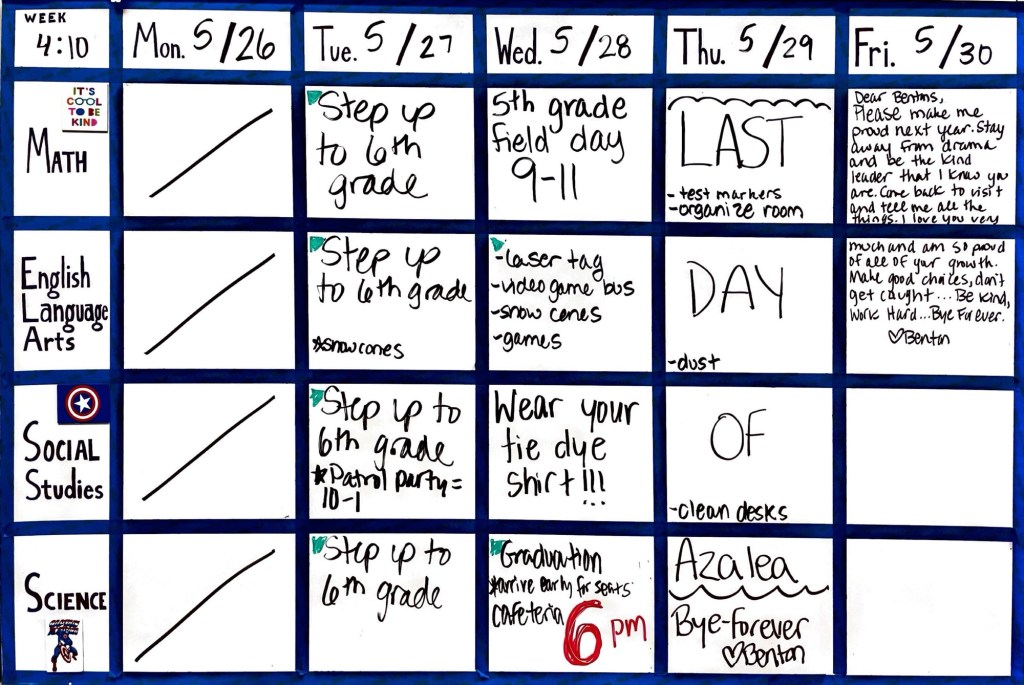 WEEK
4:10
Mon. 5/26
Tue. 5/27
Wed. 5/28
Thu. 5/29
Fri. 5/30
IT'S
COOL
TO BE
KIND
MATH
Step up
to 6th
grade
5th grade
field day
9-11
LAST
-test markers
-organize room
Dear Bentons,
Please make me
proud next year. Stay
away from drama
and be the kind
leader that I know you
are. Come back to visit
and tell me all the
things. I love you very
English
Language
Arts
Step up
to 6th grade
*snowcones
-Laser tag
-video game bus
-snow cones
-games
DAY
-dust
much and am so proud
of all of your growth.
Make good choices, don't
get caught... Be kind,
Work Hard... Bye Forever.
♡Benton
SOCIAL
Studies
Step up to
6th grade
*Patrol party =
10-1
Wear your
tie dye
shirt!!!
OF
-clean desks
SCIENCE
Step up to
6th grade
Graduation
*arrive early for seats
cafeteria
6 pm
Azalea
Bye-Forever
♡Benton